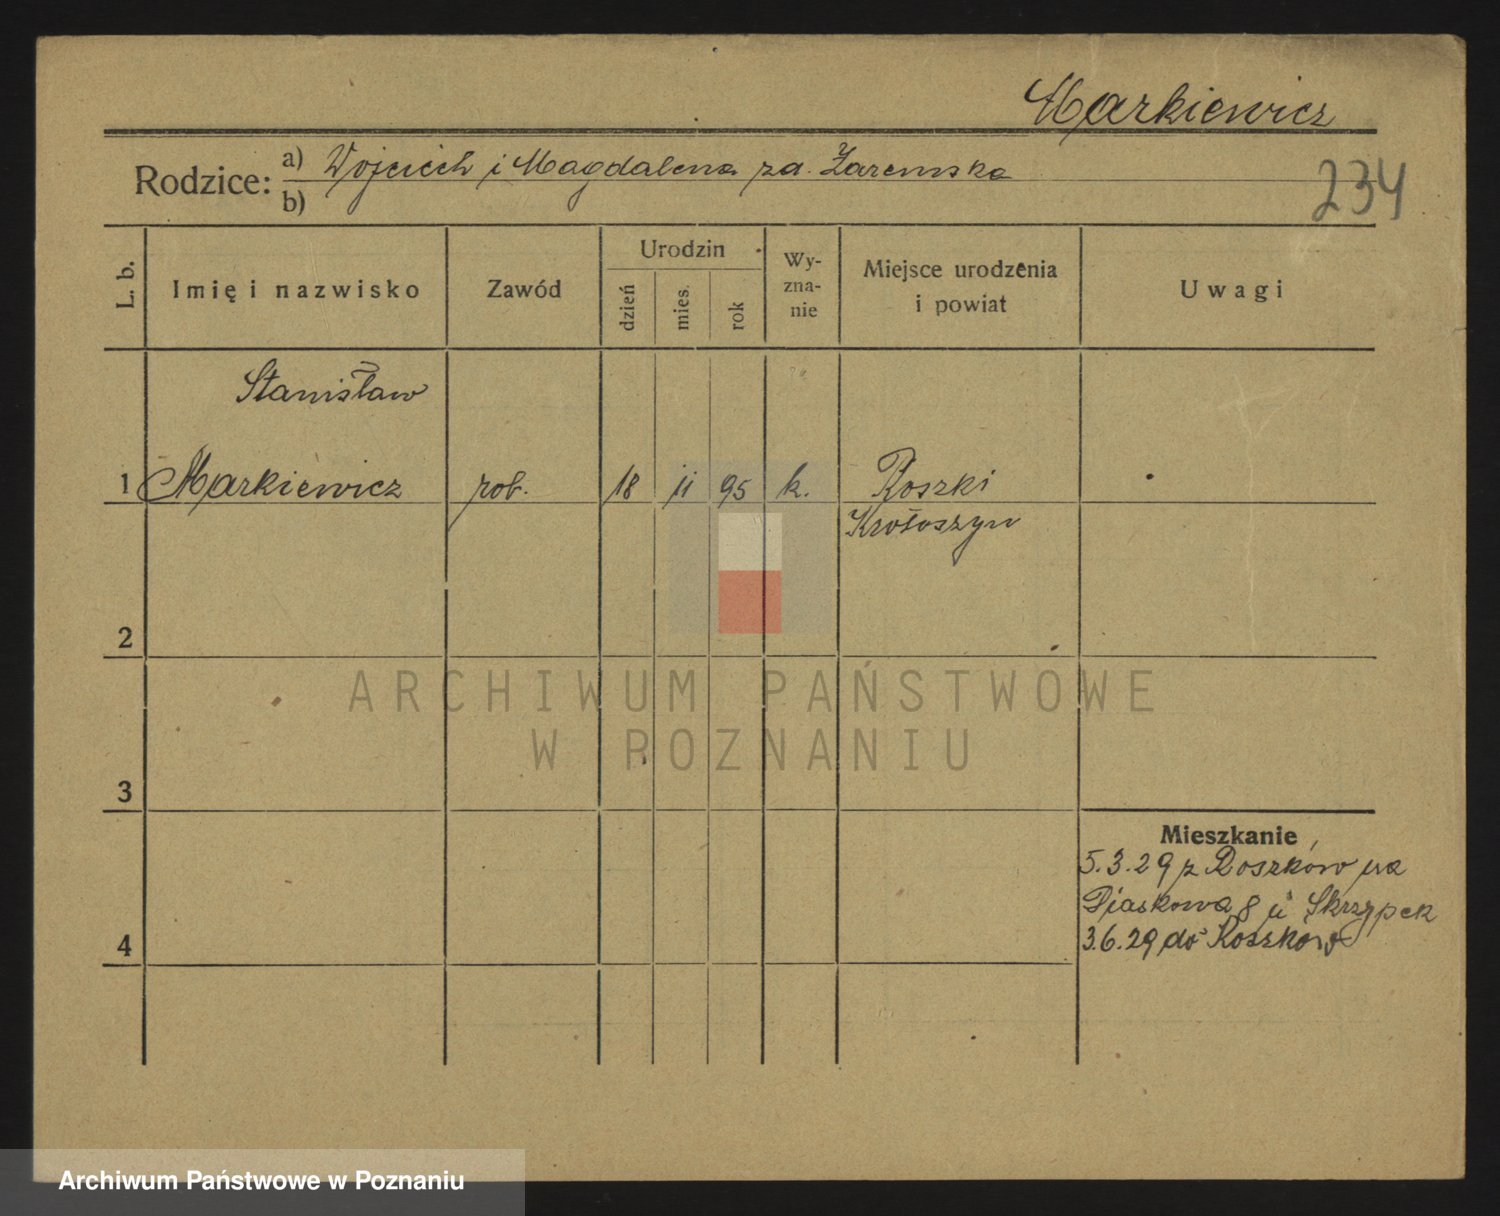 Markiewicz
Rodzice: a) Wojciech i Magdalena za. Zaremska
b)
234
L. b.
Imię i nazwisko
Zawód
Urodzin
dzień
mies.
rok
Wy-
zna-
nie
Miejsce urodzenia
i powiat
Uwagi
Stanisław
1 Markiewicz rob. 18 11 95 k. Roszki
Krotoszyn
2
3
4
Mieszkanie
5.3.29 z Roszków na
Piaskowa 8 u Skrzypek
3.6.29 do Roszków
ARCHIWUM PAŃSTWOWE
W POZNANIU
Archiwum Państwowe w Poznaniu